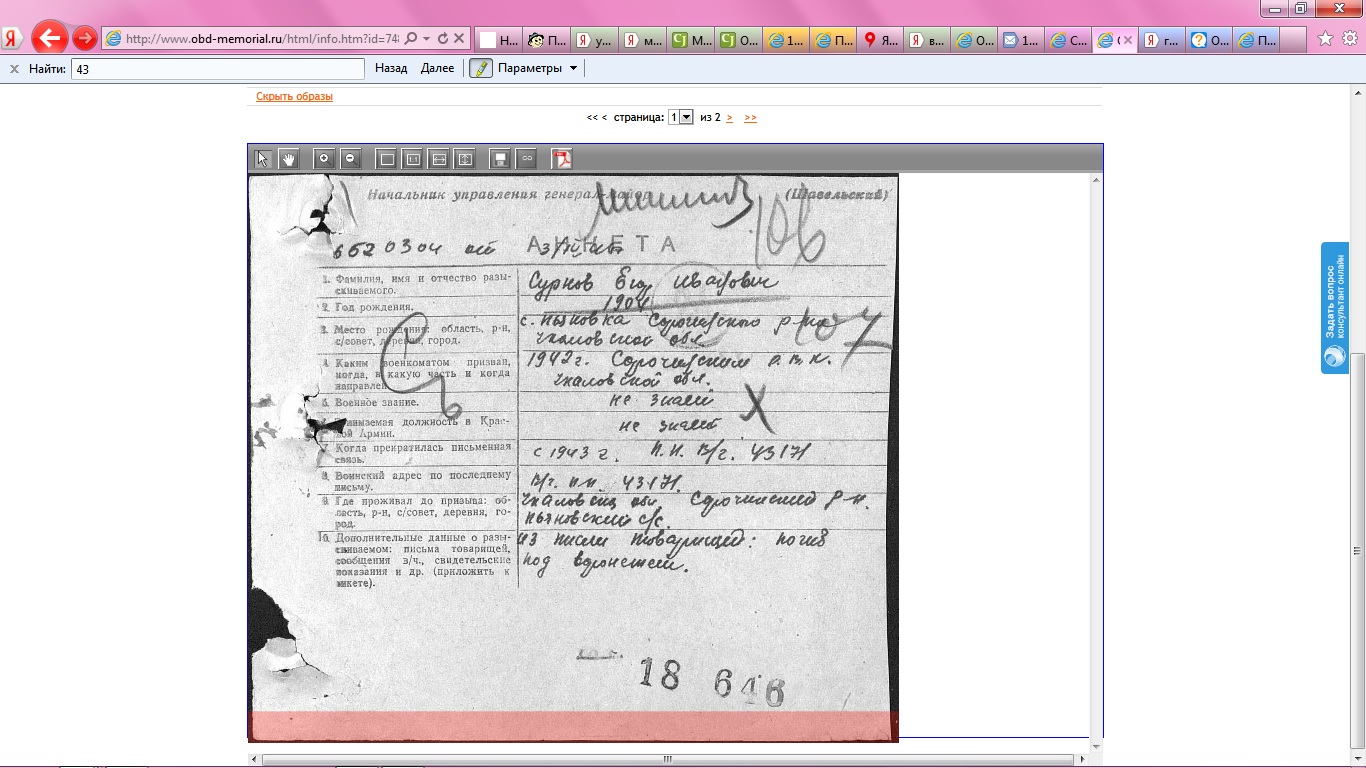 http://www.obd-memorial.ru/html/info.htm?id=74
Н...
П...
у...
м...
М...
О...
1...
П...
Я...
в...
О...
1...
С...
г...
О...
П...
x Найти: 43 Назад Далее Параметры
Скрыть образы
<< < страница: 1 из 2 > >>
Начальник управления генерал-майор (Шавельский)
106
АНКЕТА
6620304 от
1. Фамилия, имя и отчество разы-
скиваемого.
Сурков Иванович
2. Год рождения.
1904
3. Место рождения: область, р-н,
с/совет, деревня, город.
с. Пьяновка Сорочинского р-на
Чкаловской обл.
107
4. Каким военкоматом призван,
когда, в какую часть и когда
направлен
1942 г. Сорочинским р.в.к.
Чкаловской обл.
5. Военное звание.
не знаем
Занимаемая должность в Крас-
ной Армии.
не знаем
X
Когда прекратилась письменная
связь.
с 1943 г. П.П. В/ч. 43171
8. Воинский адрес по последнему
письму.
В/ч. п.п. 43171.
9. Где проживал до призыва: об-
ласть, р-н, с/совет, деревня, го-
род.
Чкаловская обл Сорочинский р-н.
Пьяновский с/с.
10. Дополнительные данные о разы-
скиваемом: письма товарищей,
сообщения в/ч., свидетельские
показания и др. (приложить к
анкете).
из писем товарищей: погиб
под Воронежем.
18 646
Задать вопрос
консультант онлайн